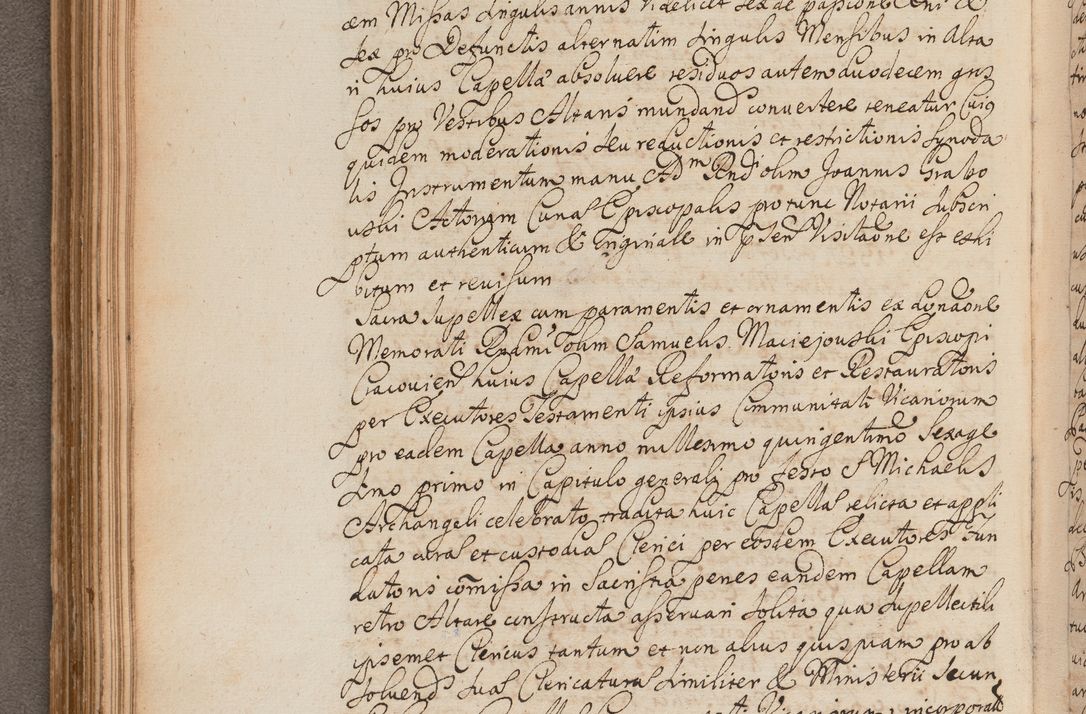 æm Missas singulis annis videlicet sex de passione Dni &
sex pro Defunctis alternatim singulis Mensibus in Alta
ri huius Capellæ absoluere residuos autem duodecem gros
sos pro Vestibus Altaris mundand conuertere teneatur Cuiq
quidem moderationis seu reductionis et restrictionis Synoda
lis Instrumentum manu Adm Rnd olim Joannis Grabo
uski Actorum Curæ Episcopalis pro tunc Notarii subscri
ptum authenticum & originale in pnsen Visitaone est exhi
bitum et reuisum
Sacra supellex cum paramentis et ornamentis ex donaone
Memorati Rndmi olim Samuelis Maciejouski Episcopi
Cracouien huius Capellæ Reformatoris et Restauratoris
per Executores Testamenti ipsius Communitati Vicariorum
pro eadem Capella anno millesimo quingentimo sexage
simo primo in Capitulo generali pro festo S Michaelis
Archangeli celebrato tradita huic Capellæ relicta et appli
cata curæ et custodiæ Clerici per eosdem Executores Fun
datoris comissa in Sacristia penes eandem Capellam
retro Altare constructa asseruari solita qua supellectili
ipsemet Clericus tantum et non alius quispiam pro ab
soluend suæ Clericaturæ similiter & Ministerii secun
incorporat